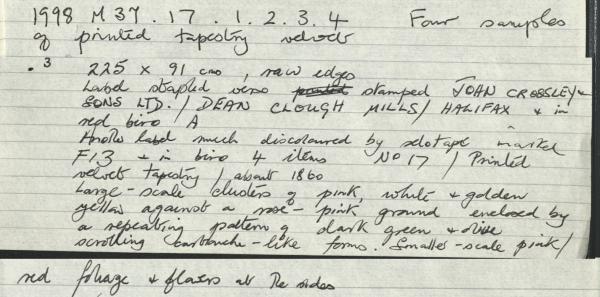 1998 M 37.17.1.2.3.4 Four samples
of printed tapestry velvets
.3 225 x 91 cms, raw edges
Label stapled verso printed stamped JOHN CROSSLEY &
SONS LTD. / DEAN CLOUGH MILLS / HALIFAX & in
red biro / A
Another label much discoloured by selotape marked
F13 & in biro 4 items No 17 / Printed
velvet tapestry / about 1860
Large-scale clusters of pink, white & golden
yellow against a rose-pink ground enclosed by
a repeating pattern of dark green & olive
scrolling cartouche-like forms. Smaller-scale pink/
red foliage & flowers at the sides